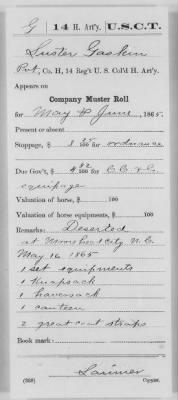 G | 14 H. Art'y. | U.S.C.T.
Luster Gaskin
Pvt., Co. H, 14 Reg't U. S. Col'd H. Art'y.
Appears on
Company Muster Roll
for May & June, 1865.
Present or absent
Stoppage, $ 100 for ordnance
Due Gov't, $ 4 82/100 for C.C. & G.
equipage
Valuation of horse, $ 100
Valuation of horse equipments, $ 100
Remarks: Deserted
at Morehead City, N.C.
May 16 1865
1 set equipments
1 Knapsack
1 haversack
1 canteen
2 great coat straps
Book mark:
Larimer
(358) Copyist.